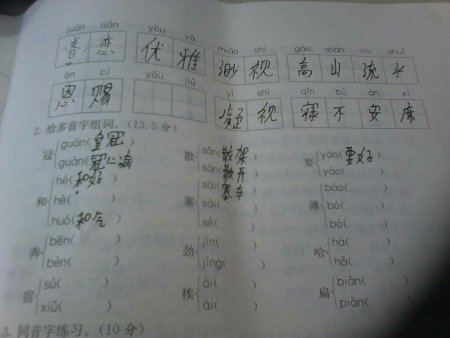 juàn liàn yōu yǎ miǎo shì gāo shān liú shuǐ
眷 恋 优 雅 渺 视 高 山 流 水
ēn cì yōu jiǔ yí shì qǐn bù ān xí
恩 赐 疑 视 寝 不 安 席
2. 给多音字组词。(13.5分)
冠 guān(皇冠) 散 sǎn(散架) 要 yào(要好)
guàn( sàn(散开 yāo( )
和 hé(和好 塞 sāi( 薄 báo( )
hè( ) sài(赛车 bó( )
huó(和气 sè( ) bò( )
奔 bēn( ) 劲 jìn( ) 哈 hā( )
bèn( ) jìng( ) hǎ( )
宿 sù( ) 挨 āi( ) 扁 biǎn( )
xiǔ( ) ái( ) piān( )
3. 同音字练习。(10分)